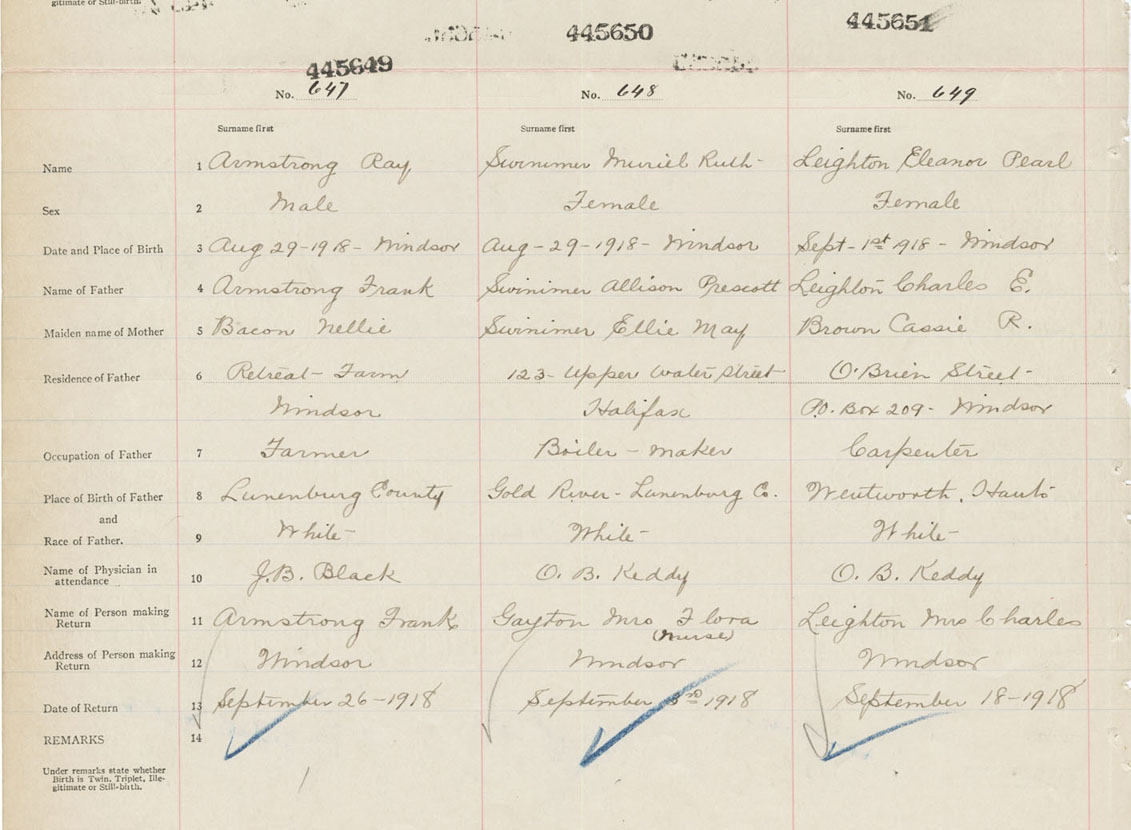 gitimate or Still-birth.
445649 445650 445651
No. 647 No. 648 No. 649
Surname first Surname first Surname first
Name 1 Armstrong Ray Swinimer Muriel Ruth- Leighton Eleanor Pearl
Sex 2 Male Female Female
Date and Place of Birth 3 Aug 29-1918- Windsor Aug-29-1918- Windsor Sept-1st 1918- Windsor
Name of Father 4 Armstrong Frank Swinimer Allison Prescott Leighton Charles E.
Maiden name of Mother 5 Bacon Nellie Swinimer Ellie May Brown Cassie R.
Residence of Father 6 Retreat- Farm 123- Upper Water Street O'Brien Street-
Windsor Halifax P.O. Box 209- Windsor
Occupation of Father 7 Farmer Boiler-maker Carpenter
Place of Birth of Father 8 Lunenburg County Gold River- Lunenburg Co. Wentworth, Hants
and
Race of Father. 9 White- White- White-
Name of Physician in
attendance 10 J.B. Black O. B. Keddy O. B. Keddy
Name of Person making
Return 11 Armstrong Frank Gayton Mrs Flora Leighton Mrs Charles
(Nurse)
Address of Person making
Return 12 Windsor Windsor Windsor
Date of Return 13 September 26-1918 September 3rd 1918 September 18-1918
REMARKS 14
Under remarks state whether
Birth is Twin, Triplet, Ille-
gitimate or Still-birth.